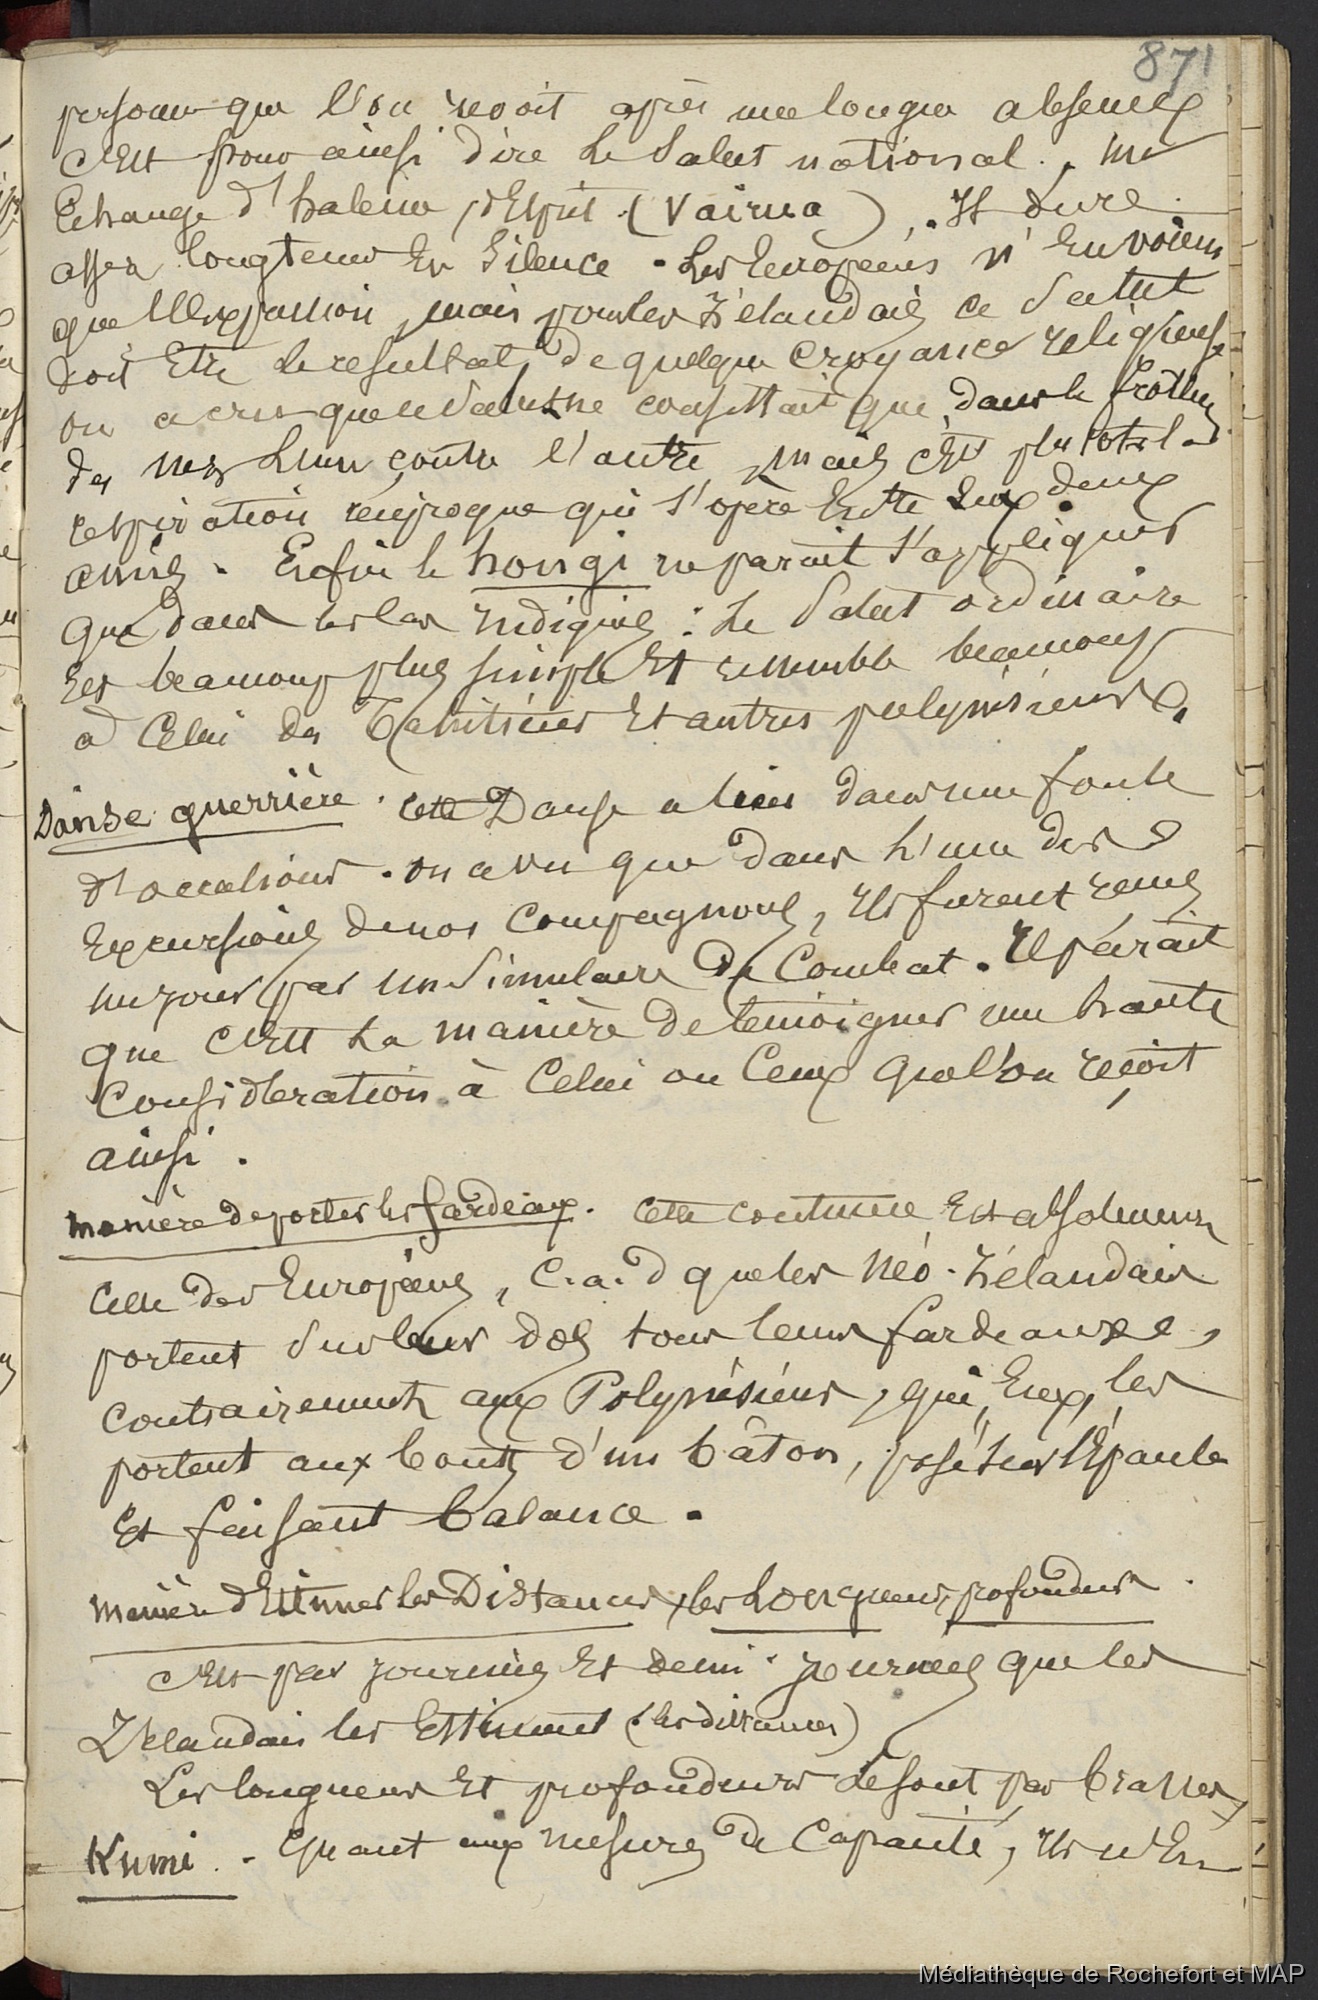 871
personne que l'on revoit après une longue absence
c'est pour ainsi dire le salut national. un
Echange d'haleine, d'Esprit (Vairua). Il dure
assez longtems En silence. Les Européens n'En voient
que l'Expression, mais pour les Zélandais ce salut
doit Etre le resultat de quelque croyance religieuse
on a cru que le salut ne consistait que dans le frotter
des nez l'un contre l'autre, mais c'Est plutot la
respiration réciproque qui s'opère Entre Eux deux
amis. Enfin le hongi ne parait s'appliquer
que dans les cas indigines : Le salut ordinaire
Est beaucoup plus simple Et ressemble beaucoup
à Celui des Tahitiens Et autres polynésiens.
Danse guerrière. Cette Danse a lieu dans une foule
d'occasions. on a vu que dans l'une des
Excursions de nos compagnons, ils furent reçus
par un simulacre de Combat. Il parait
que c'Est la manière de temoigner une haute
Consideration à Celui ou Ceux que l'on reçoit
ainsi.
manière de porter les fardeaux. Cette coutume Est absolument
Celle des Européens, C.a.d que les Néo-Zélandais
portent sur leur dos tous leurs fardeaux,
Contrairement aux Polynésiens, qui, Eux, les
portent aux bouts d'un bâton, posé sur l'Épaule
Et faisant balance.
manière d'Estimer les Distances, les Longueurs, profondeurs.
C'Est par journées Et demi-journées que les
Zélandais les Estiment (les distances)
Les longueurs Et profondeurs se font par brasses,
Kumi. Quant aux mesures de Capacité, ils n'En
Médiathèque de Rochefort et MAP